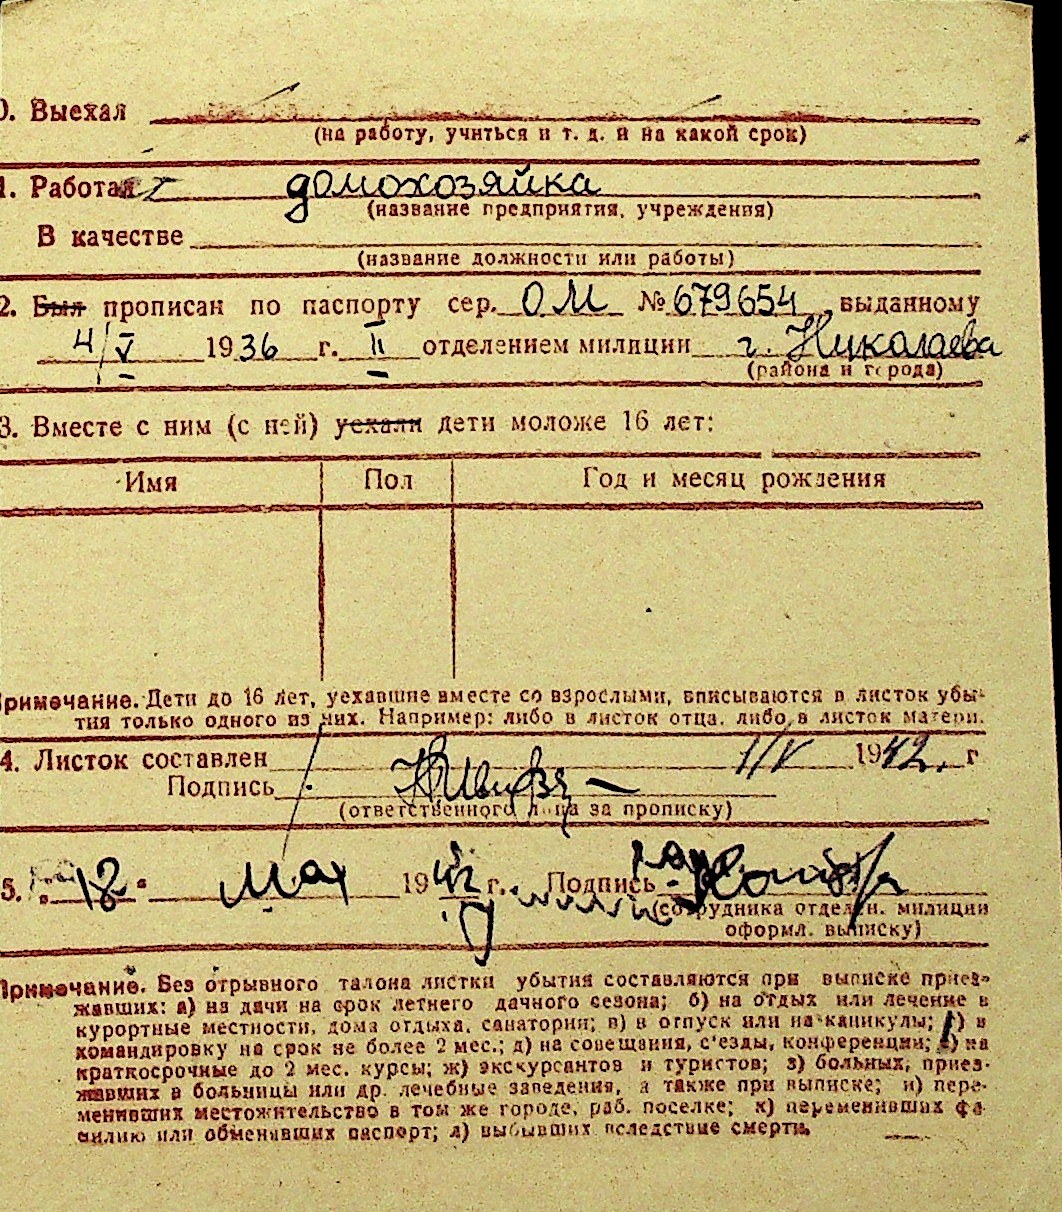 0. Выехал
(на работу, учиться и т. д. и на какой срок)
1. Работал домохозяйка
(название предприятия, учреждения)
В качестве
(название должности или работы)
2. Был прописан по паспорту сер. ОМ № 679654, выданному
4/V 1936 г. II отделением милиции г. Николаева
(района и города)
3. Вместе с ним (с ней) уехали дети моложе 16 лет:
Имя Пол Год и месяц рождения
римечание. Дети до 16 лет, уехавшие вместе со взрослыми, вписываются в листок убы-
тия только одного из них. Например: либо в листок отца, либо в листок матери.
4. Листок составлен 1/V 1942. г
Подпись
(ответственного лица за прописку)
5. 18 мая 1942 г. Подпись
(сотрудника отделен. милиции
оформл. выписку)
Примечание. Без отрывного талона листки убытия составляются при выписке приез-
жавших: а) на дачи на срок летнего дачного сезона; б) на отдых или лечение в
курортные местности, дома отдыха, санатории; в) в отпуск или на каникулы; г) в
командировку на срок не более 2 мес.; д) на совещания, с'езды, конференции; е) на
краткосрочные до 2 мес. курсы; ж) экскурсантов и туристов; з) больных, приез-
жавших в больницы или др. лечебные заведения, а также при выписке; и) пере-
менивших местожительство в том же городе, раб. поселке; к) переменивших фа-
милию или обменявших паспорт; л) выбывших вследствие смерти.